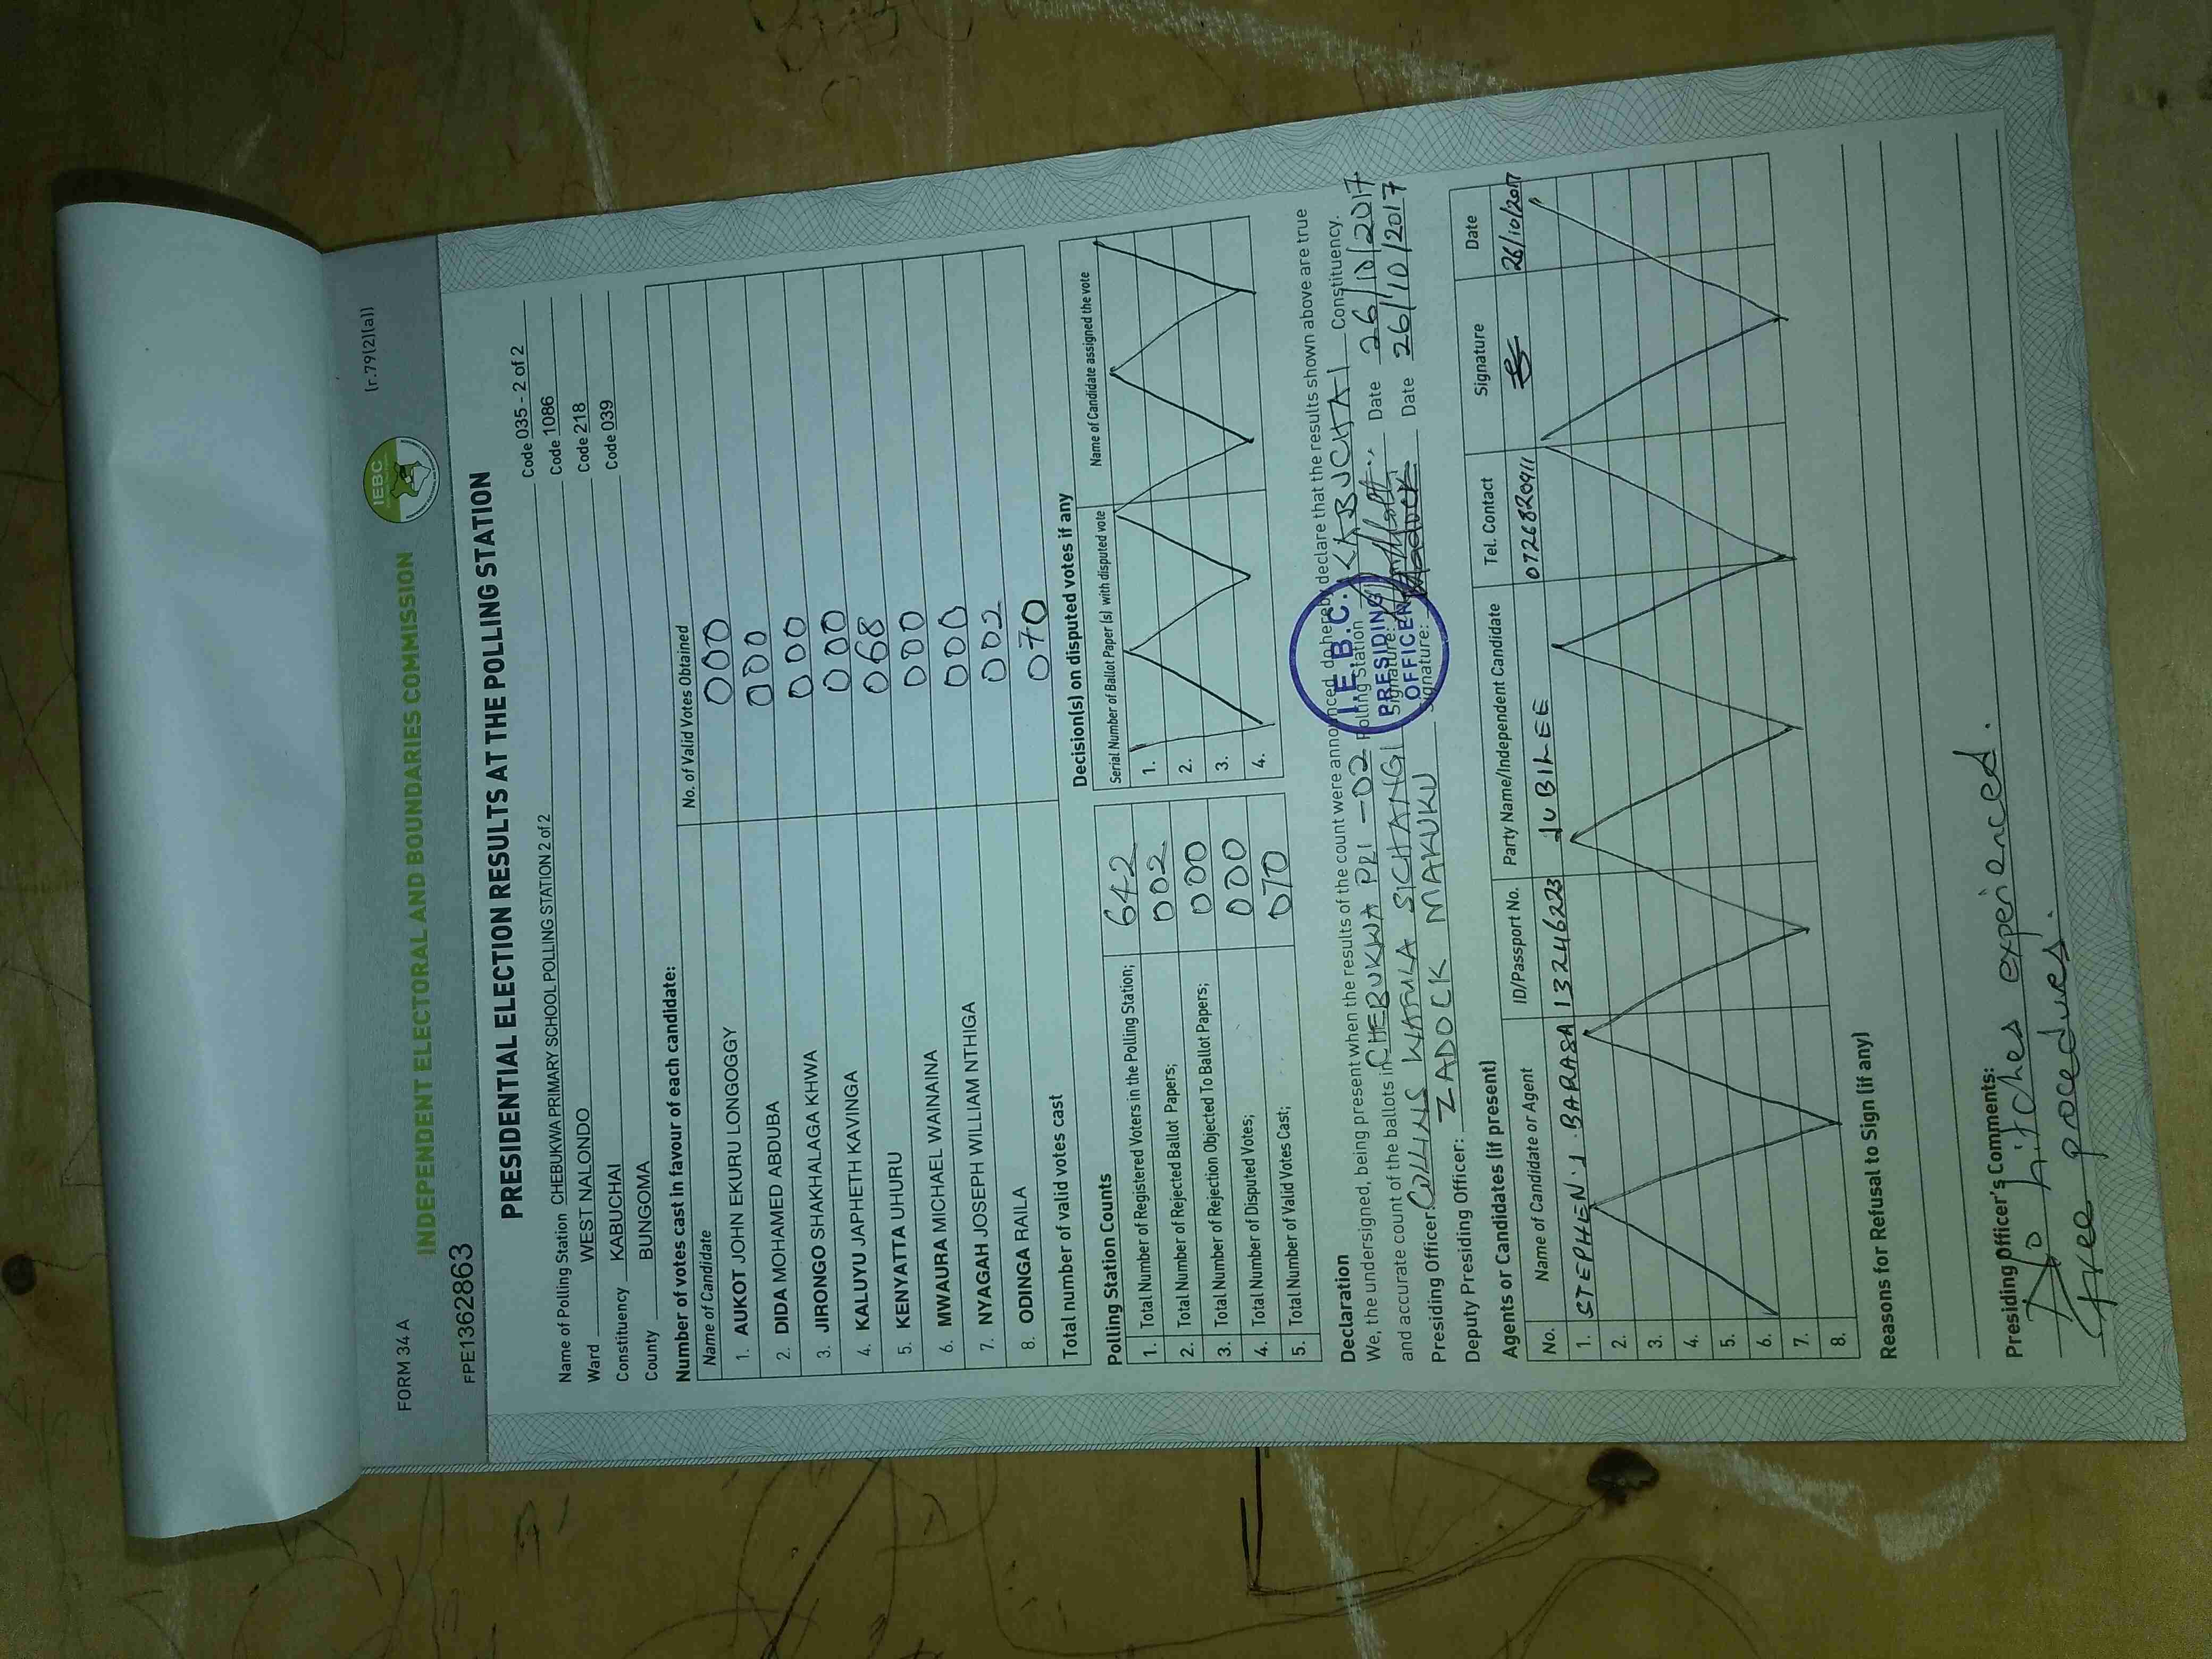 FORM 34 A
(r.79(2)(a))
IEBC
INDEPENDENT ELECTORAL AND BOUNDARIES COMMISSION
FPE1362863
PRESIDENTIAL ELECTION RESULTS AT THE POLLING STATION
Name of Polling Station CHEBUKWA PRIMARY SCHOOL POLLING STATION 2 of 2 Code 035 - 2 of 2
Ward WEST NALONDO Code 1086
Constituency KABUCHAI Code 218
County BUNGOMA Code 039
Number of votes cast in favour of each candidate:
Name of Candidate No. of Valid Votes Obtained
1. AUKOT JOHN EKURU LONGOGGY 000
2. DIDA MOHAMED ABDUBA 000
3. JIRONGO SHAKHALAGA KHWA 000
4. KALUYU JAPHETH KAVINGA 000
5. KENYATTA UHURU 068
6. MWAURA MICHAEL WAINAINA 000
7. NYAGAH JOSEPH WILLIAM NTHIGA 000
8. ODINGA RAILA 002
Total number of valid votes cast 070
Polling Station Counts
1. Total Number of Registered Voters in the Polling Station; 642
2. Total Number of Rejected Ballot Papers; 002
3. Total Number of Rejection Objected To Ballot Papers; 000
4. Total Number of Disputed Votes; 000
5. Total Number of Valid Votes Cast; 070
Decision(s) on disputed votes if any
Serial Number of Ballot Paper (s) with disputed vote Name of Candidate assigned the vote
1.
2.
3.
4.
Declaration
We, the undersigned, being present when the results of the count were announced do hereby declare that the results shown above are true
and accurate count of the ballots in CHEBUKWA PRI -02 Polling Station KABUCHAI Constituency.
Presiding Officer: COLLINS WAFULA SICHANGI Signature: Date 26/10/2017
Deputy Presiding Officer: ZADOCK MAKUKU Signature: Zadock Date 26/10/2017
I.E.B.C.
PRESIDING
OFFICER
Agents or Candidates (if present)
No. Name of Candidate or Agent ID/Passport No. Party Name/Independent Candidate Tel. Contact Signature Date
1. STEPHEN . J . BARASA 132246223 JUBILEE 0726820911 26/10/2017
2.
3.
4.
5.
6.
7.
8.
Reasons for Refusal to Sign (if any)
Presiding Officer's Comments:
No hitches experienced.
Free procedures.